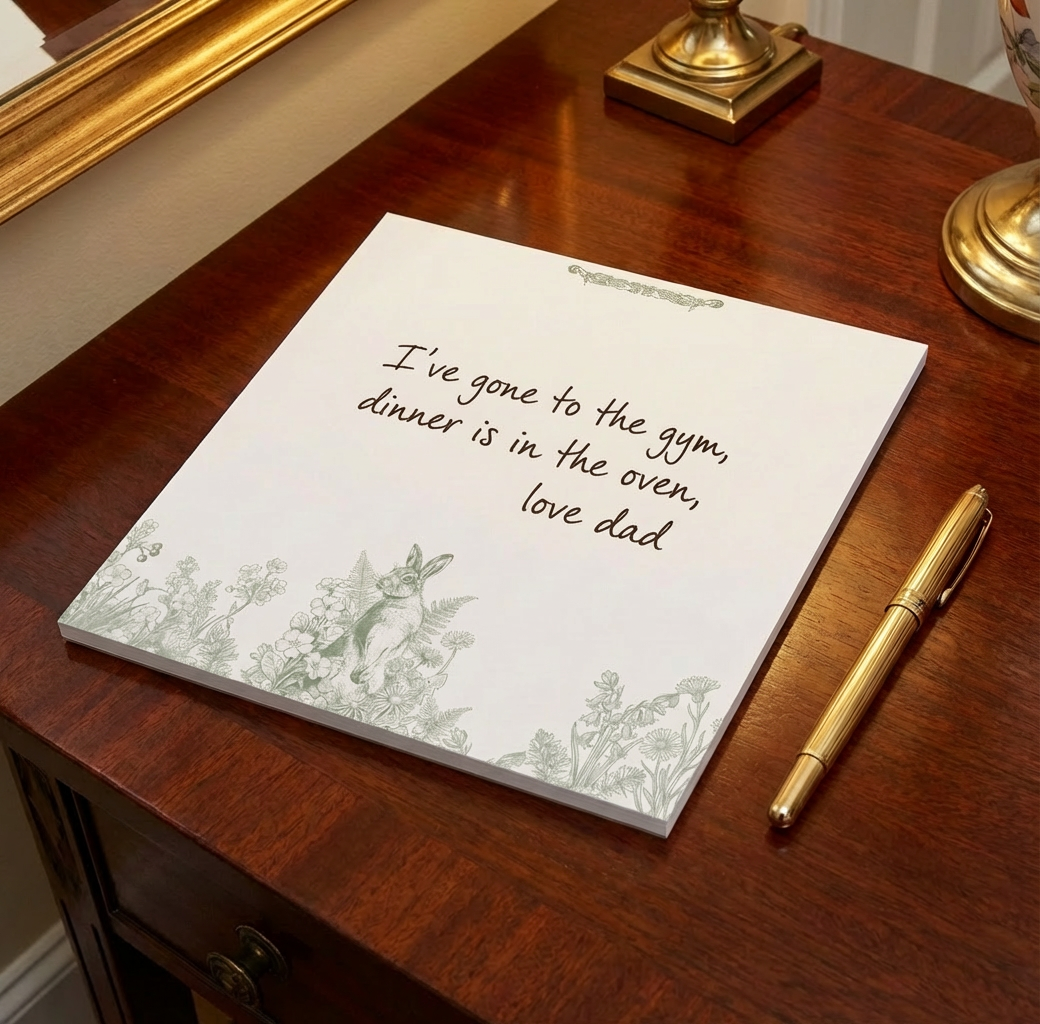 I've gone to the gym,
dinner is in the oven,
love dad